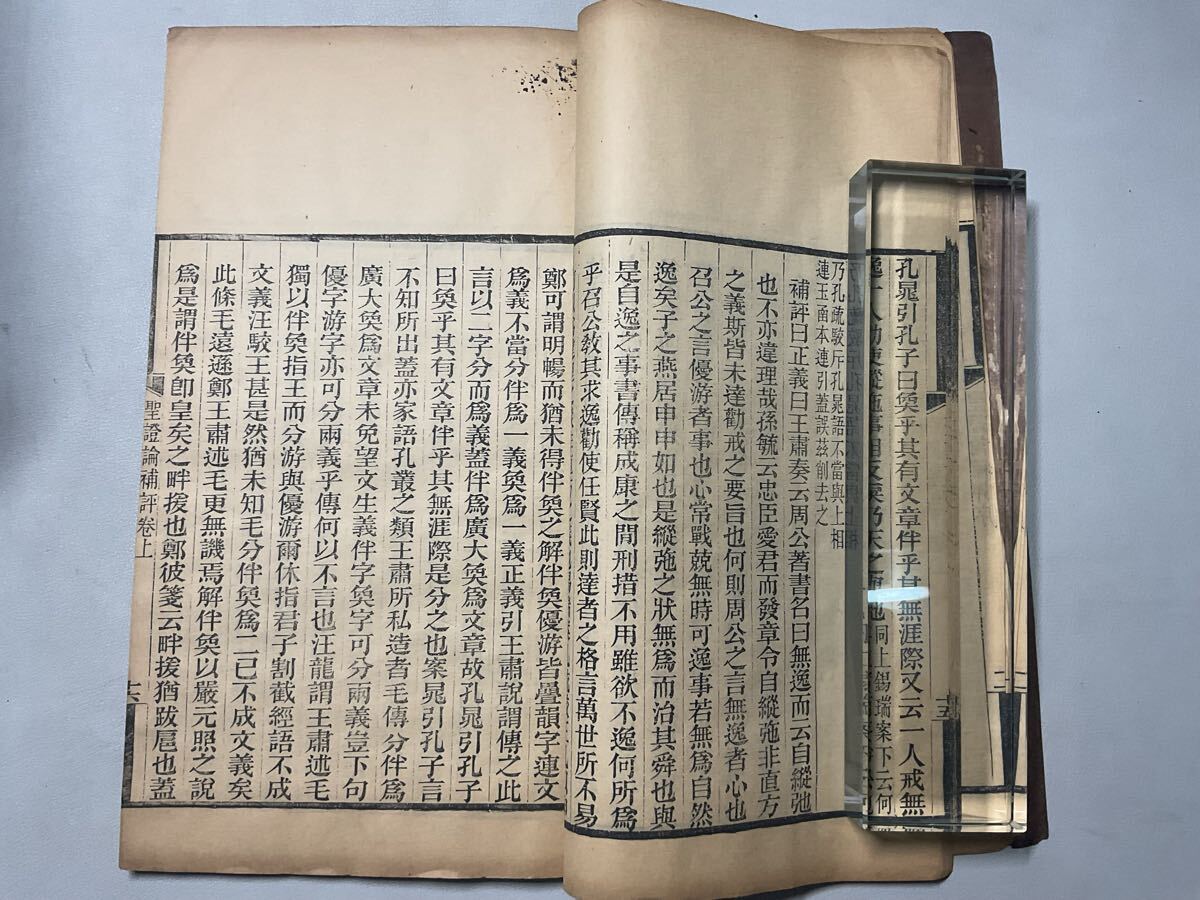 孔晁引孔子曰奐乎其有文章伴乎其無涯際又云一人戒無
同上錫瑞案下云何
乃孔疏駮斥孔晁語不當與上相
連玉函本連引蓋誤茲削去之
補評曰正義曰王肅奏云周公著書名曰無逸而云自縱弛
也不亦違理哉孫毓云忠臣愛君而發章令自縱弛非直方
之義斯皆未達勸戒之要旨也何則周公之言無逸者心也
召公之言優游者事也心常戰兢無時可逸事若無為自然
逸矣子之燕居申申如也是縱弛之狀無為而治其舜也與
是自逸之事書傳稱成康之閒刑措不用雖欲不逸何所為
乎召公敎其求逸勸使任賢此則達者之格言萬世所不易
鄭可謂明暢而猶未得伴奐之解伴奐優游皆疊韻字連文
為義不當分伴為一義奐為一義正義引王肅說謂傳之此
言以二字分而為義蓋伴為廣大奐為文章故孔晁引孔子
曰奐乎其有文章伴乎其無涯際是分之也案晁引孔子言
不知所出蓋亦家語孔叢之類王肅所私造者毛傳分伴為
廣大奐為文章未免望文生義伴字奐字可分兩義豈下句
優字游字亦可分兩義乎傳何以不言也汪龍謂王肅述毛
獨以伴奐指王而分游與優游爾休指君子割截經語不成
文義汪駮王甚是然猶未知毛分伴奐為二已不成文義矣
此條毛遠遜鄭王肅述毛更無譏焉解伴奐以嚴元照之說
為是謂伴奐卽皇矣之畔援也鄭彼箋云畔援猶跋扈也蓋
聖證論補評卷上
十六